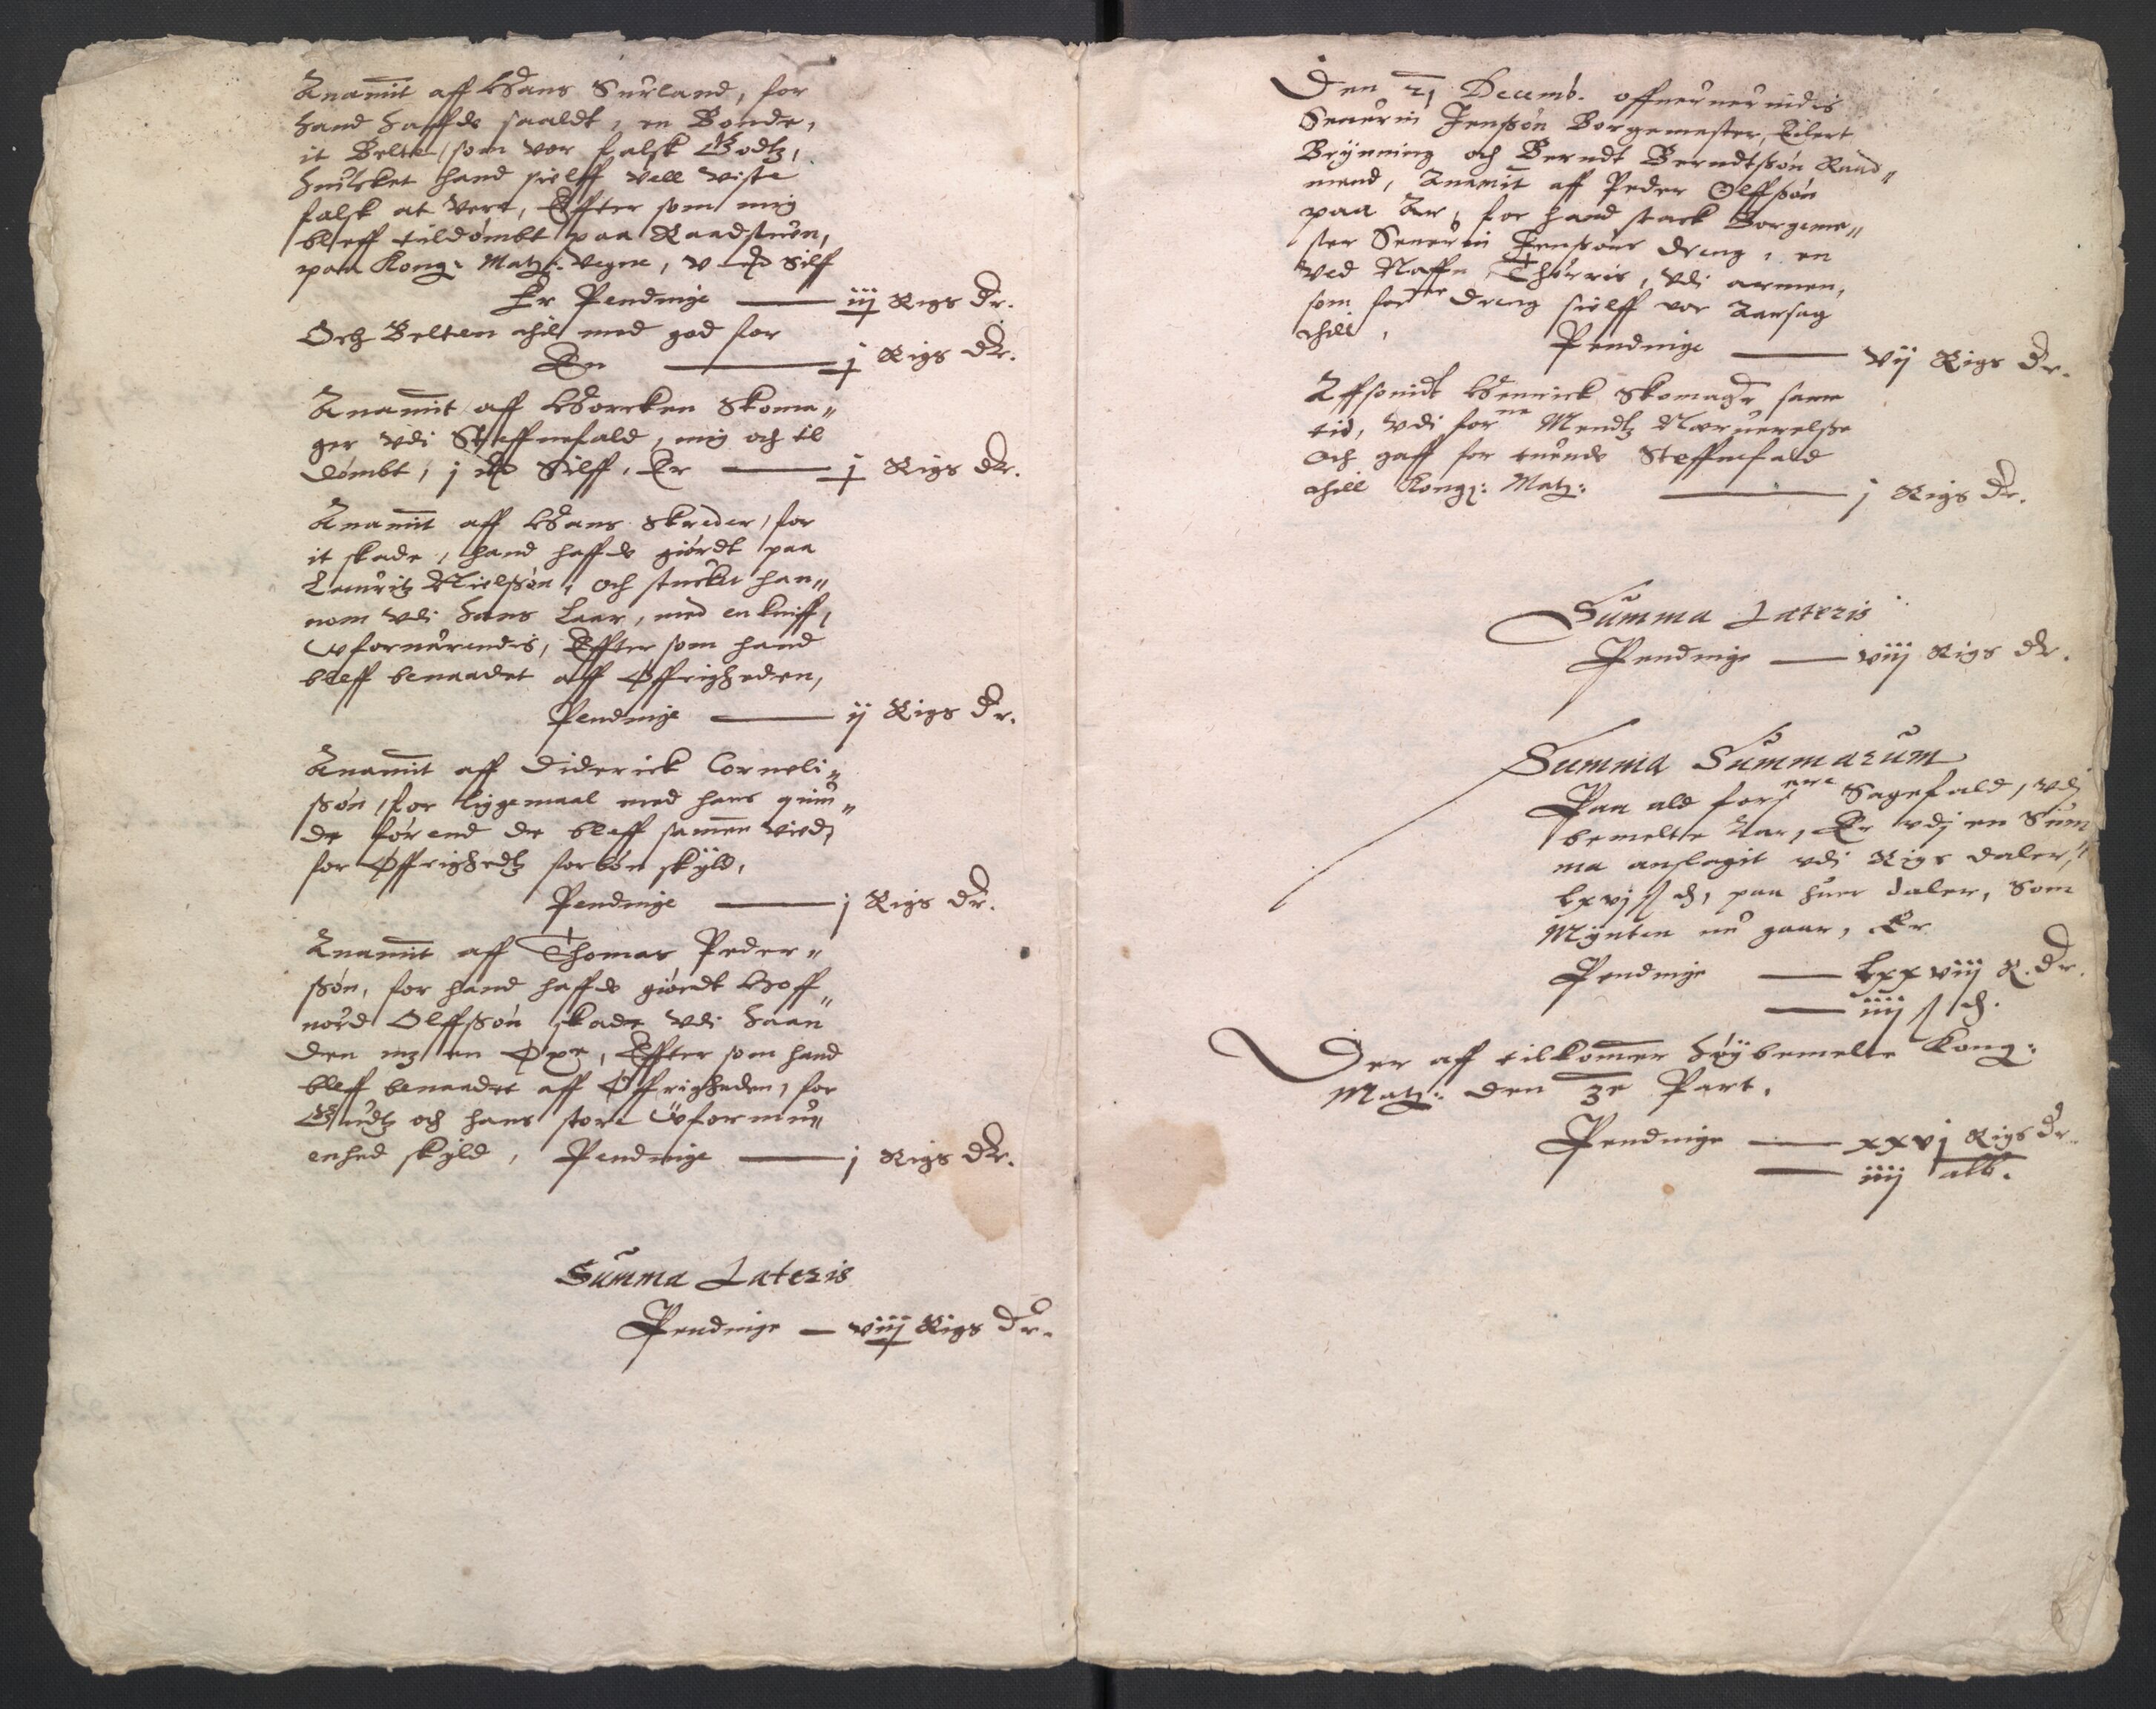 Anammit aff Hans Surland, for
hand haffde saaldt, en Bonde,
it Belte, som var falsk Godtz,
huilcket hand sielff vell viste
falsk at vere, Effter som mig
bleff tildømbt paa Raadstuen,
paa Kong: Matz: vegne, v Silff
Er Pendinge — iij Rigs Dr.
Och Belten ehil med god for
En — j Rigs Dr.
Anammit aff Borcken Skoma„
ger vdi Steffnefald, mig och til
dømbt, j Silff, Er — j Rigs Dr.
Anammit aff Hans Skreder, for
it skade, hand haffde giørdt paa
Lauritz Nielssøn, och stucket han„
nom vdi hans Laar, med en kniff,
vforuarendis, Effter som hand
bleff benaadet aff Øffrigheden,
Pendinge — ij Rigs Dr.
Anammit aff Diderick Corneli„
ssøn, for liggemaal med hans quin„
de førend de bleff sammen viede,
for Øffrighedtz forbøn skyld,
Pendinge — j Rigs Dr.
Anammit aff Thomas Peder„
ssøn, for hand haffde giørdt Hoff„
nord Olffssøn skade vdi Haan
den en Øxe, Effter som hand
bleff benaadet aff Øffrigheden, for
Gudtz och hans store Vformu„
enhed skyld, Pendinge — j Rigs Dr.
Summa Lateris
Pendinge — viiij Rigs Dr.
Den 21 Decemb. offuerueruendis
Seuerin Jenssøn Borgemester, Eilert
Brynning och Berndt Berndtssøn Raad„
mend, Anammit aff Peder Olffssøn
paa Ar, for hand stack Borgeme„
ster Seuerin Jenssøns dreng, en
ved Naffn Thørris, vdi armen,
som forne dreng sielff vor Aarsag
thill, Pendinge — vij Rigs Dr.
Affsonidt Henrick Skomager samme
tid, vdi forne Mendtz Neruerelsse
och gaff for tuende Steffnefald
thill Kong: Matz: — j Rigs Dr.
Summa Lateris
Pendinge — viij Rigs Dr.
Summa Summarum
Paa ald forsne Sagefald, vdi
bemelte Aar, Er vdi en Sum
ma anslagit vdi Rigs daler,
Lxvj ß d, paa huer daler, Som
Mynten nu gaar, Er
Pendinge — Lxxviij R. Dr.
— iiij ß d.
Der aff tilkommer høybemelte Kong:
Matz: den 3e Part.
Pendinge — xxvj Rigs Dr.
— iiij alb.